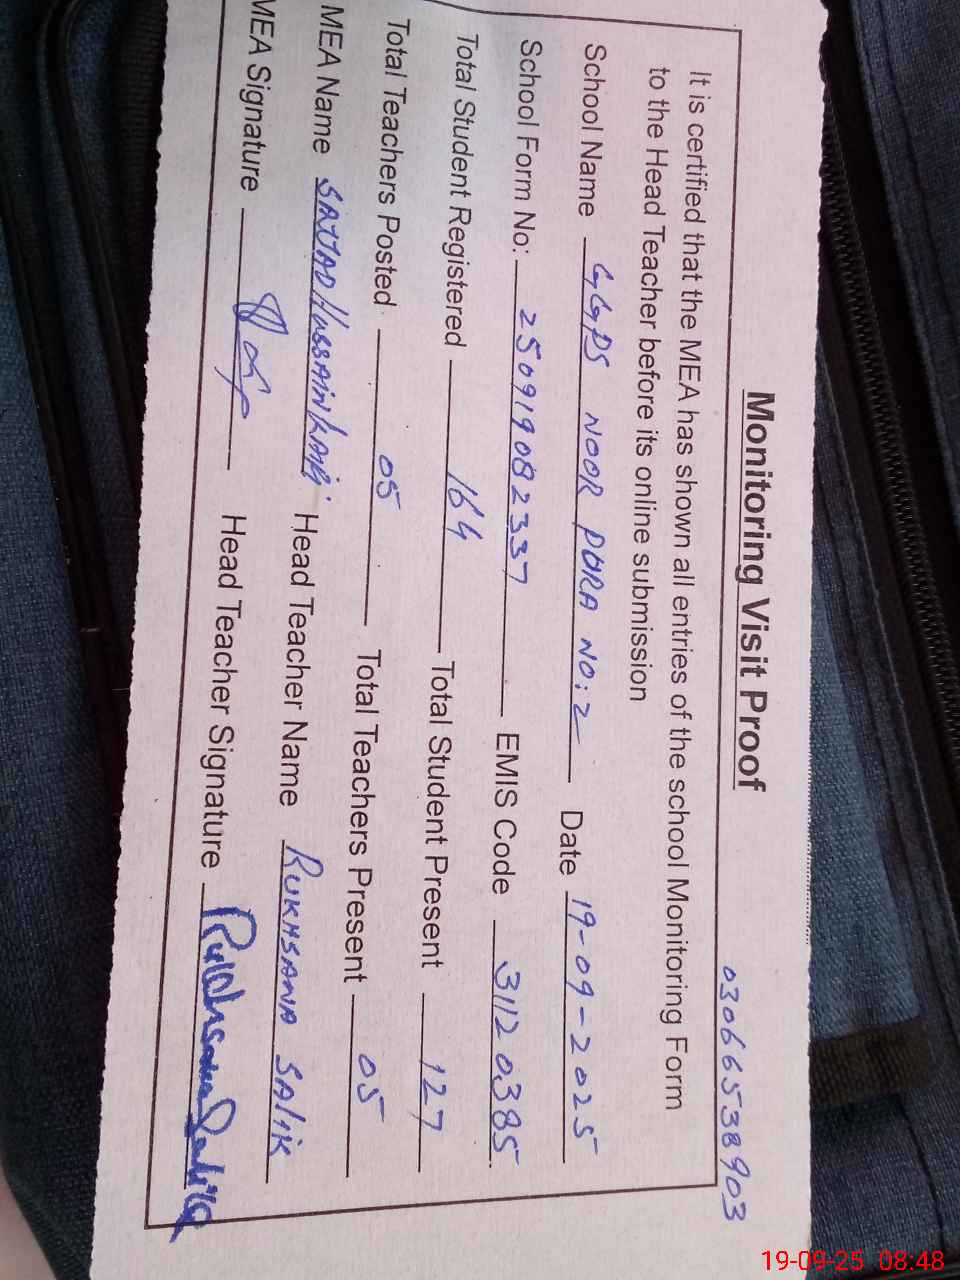 03066538903
Monitoring Visit Proof
It is certified that the MEA has shown all entries of the school Monitoring Form
to the Head Teacher before its online submission
School Name GGPS NOOR PURA NO:2 Date 19-09-2025
School Form No: 250919082337 EMIS Code 31120385
Total Student Registered 164 Total Student Present 127
Total Teachers Posted 05 Total Teachers Present 05
MEA Name SAJJAD HUSSAIN Head Teacher Name RUKHSANA SALIK
MEA Signature Head Teacher Signature Rukhsana Salik
19-09-25 08:48